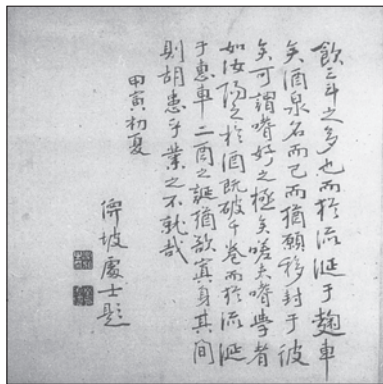 飲三斗之多也而於流涎于麹車
矣酒泉名而已而猶願移封于彼
矣可謂嗜好之極矣嗟夫嗜學者
如汝陽之於酒既破千卷而於流涎
于惠車二酉之誕猶欲寘身其間
則胡患乎業之不就哉
甲寅初夏
坡處士題